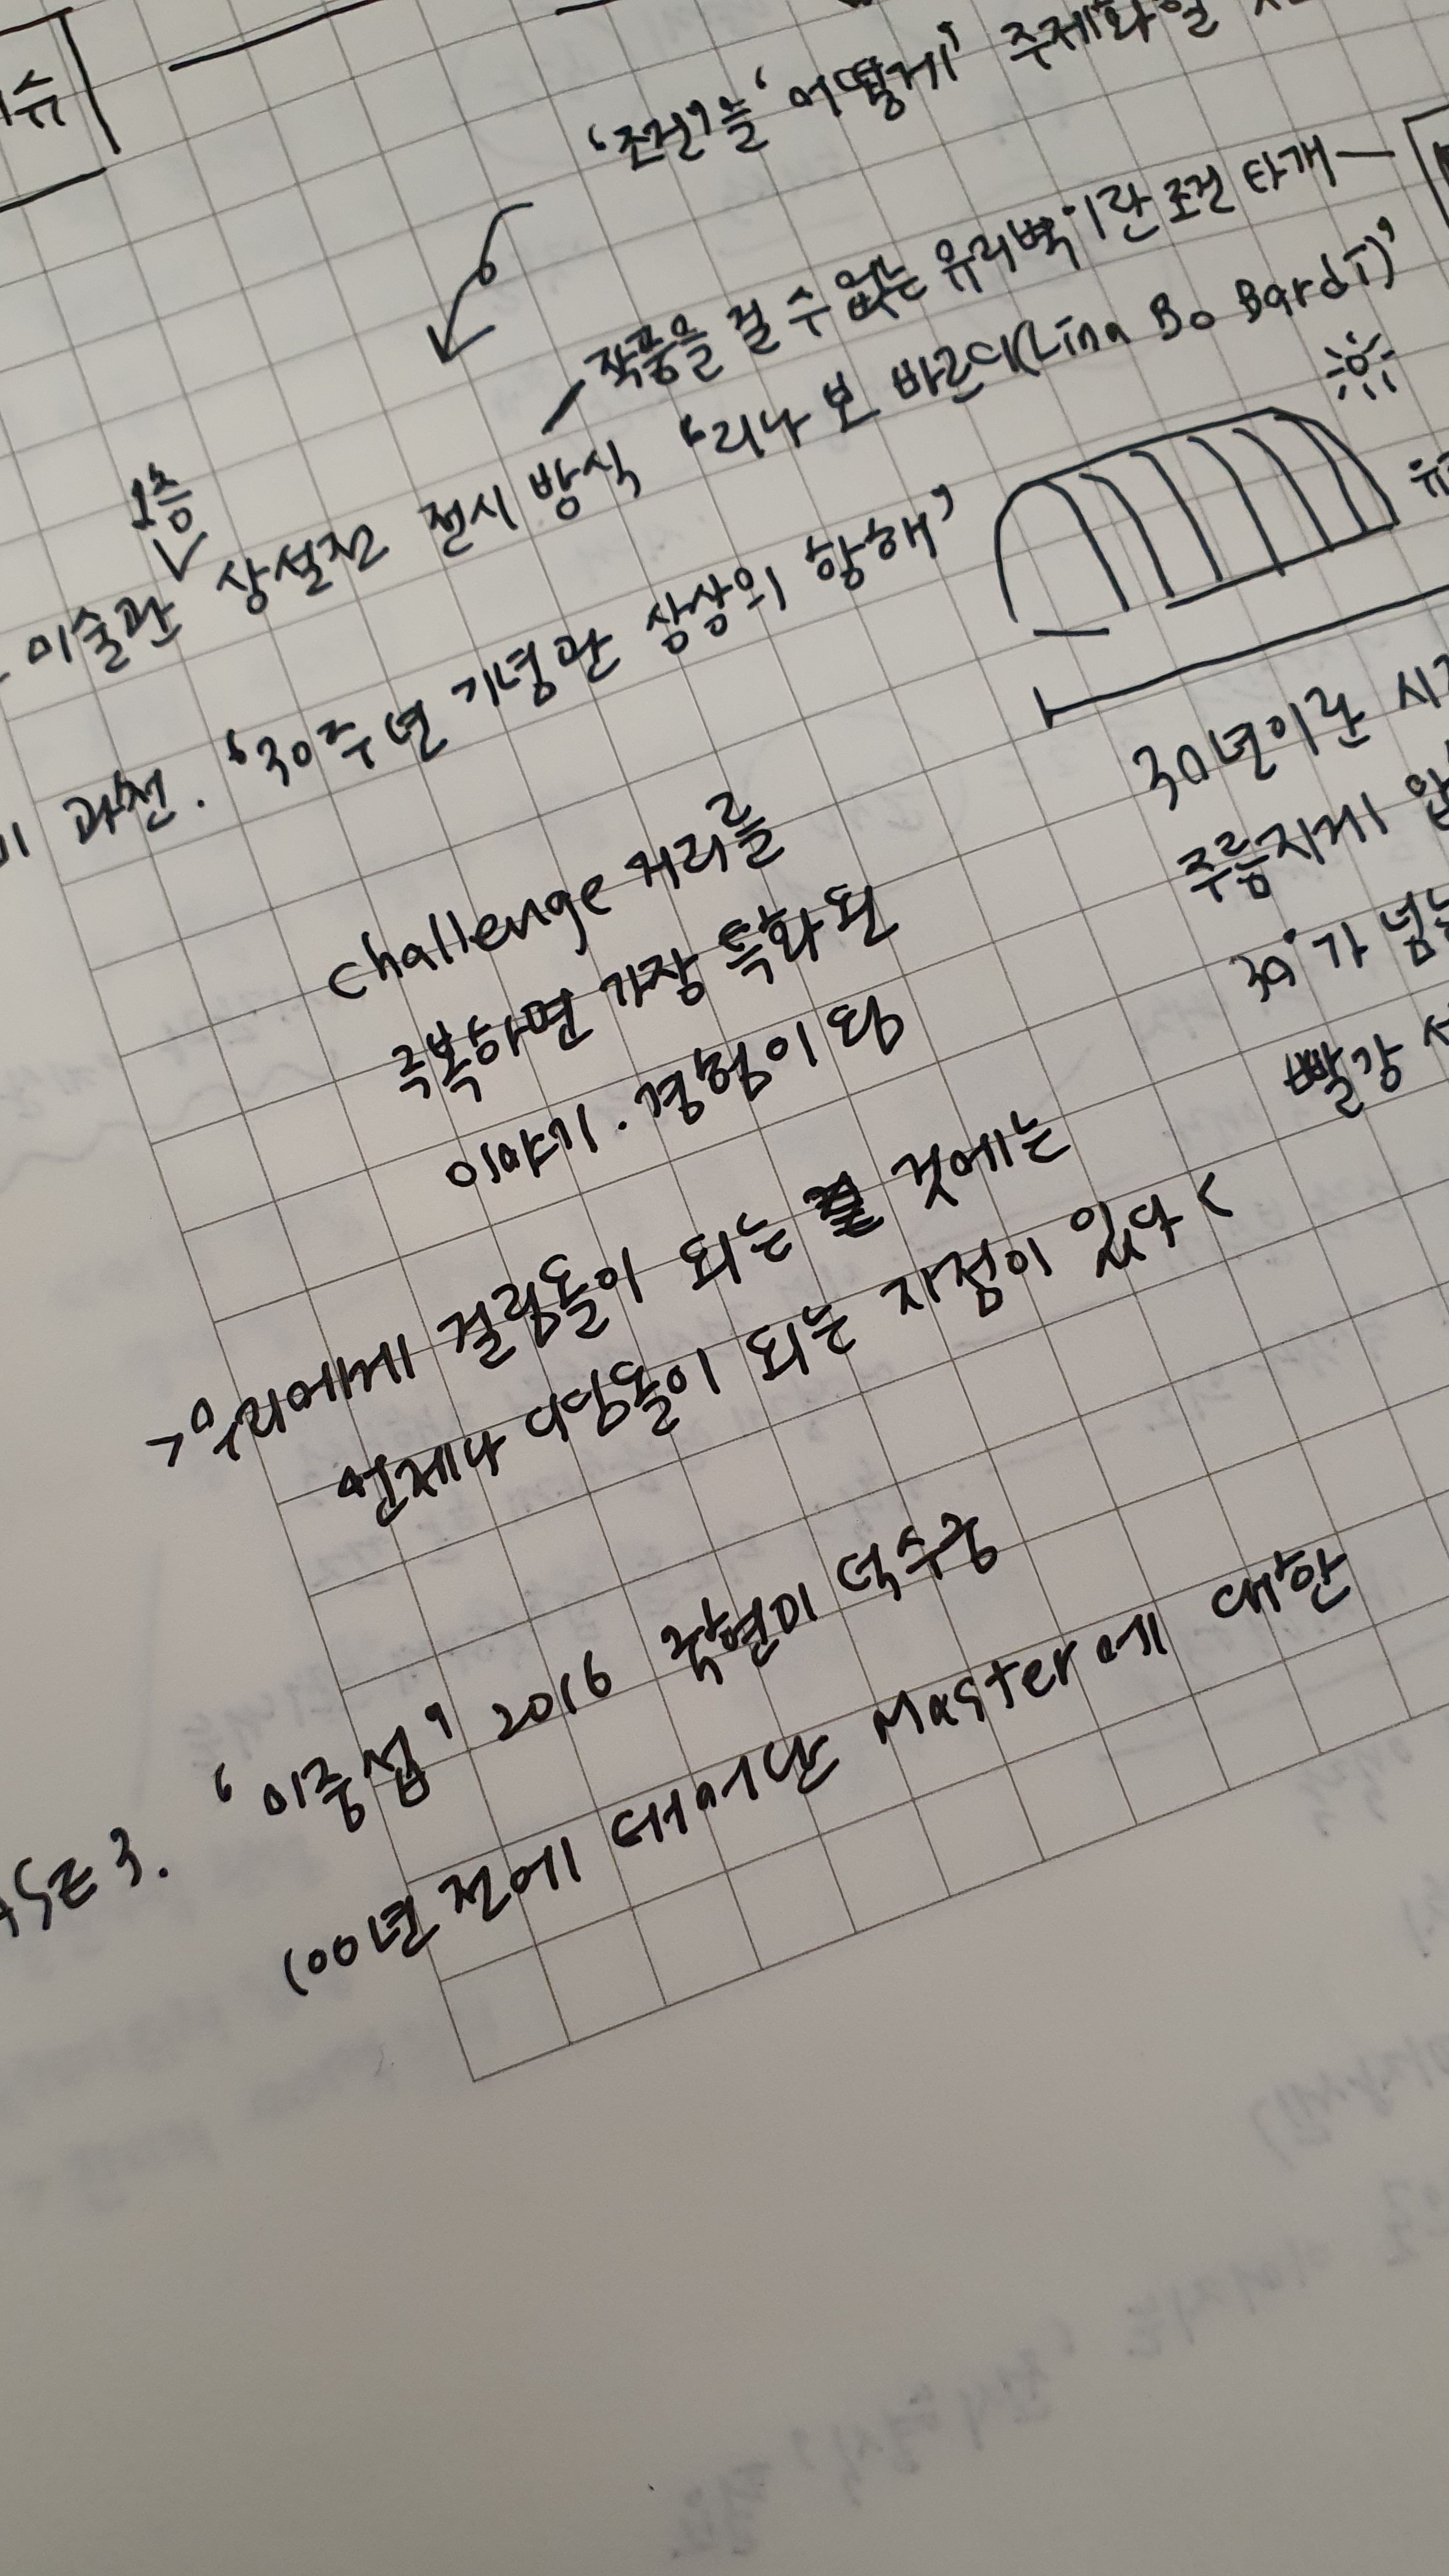 '조건'을 '어떻게' 주제화할
작품을 걸 수 없는 유리벽이란 조건 타개
1층
미술관 상설전 전시 방식 '리나 보 바르디(Lina Bo Bardi)'
과천. '30주년 기념관 상상의 항해'
30년이란
주름지게
30°가 넘는
빨강
challenge 거리를
극복하면 가장 특화된
이야기. 경험이 됨
>우리에게 걸림돌이 되는 것에는
언제나 디딤돌이 되는 지점이 있다<
ASE 3. '이중섭' 2016 국현미 덕수궁
100년 전에 태어난 Master에 대한